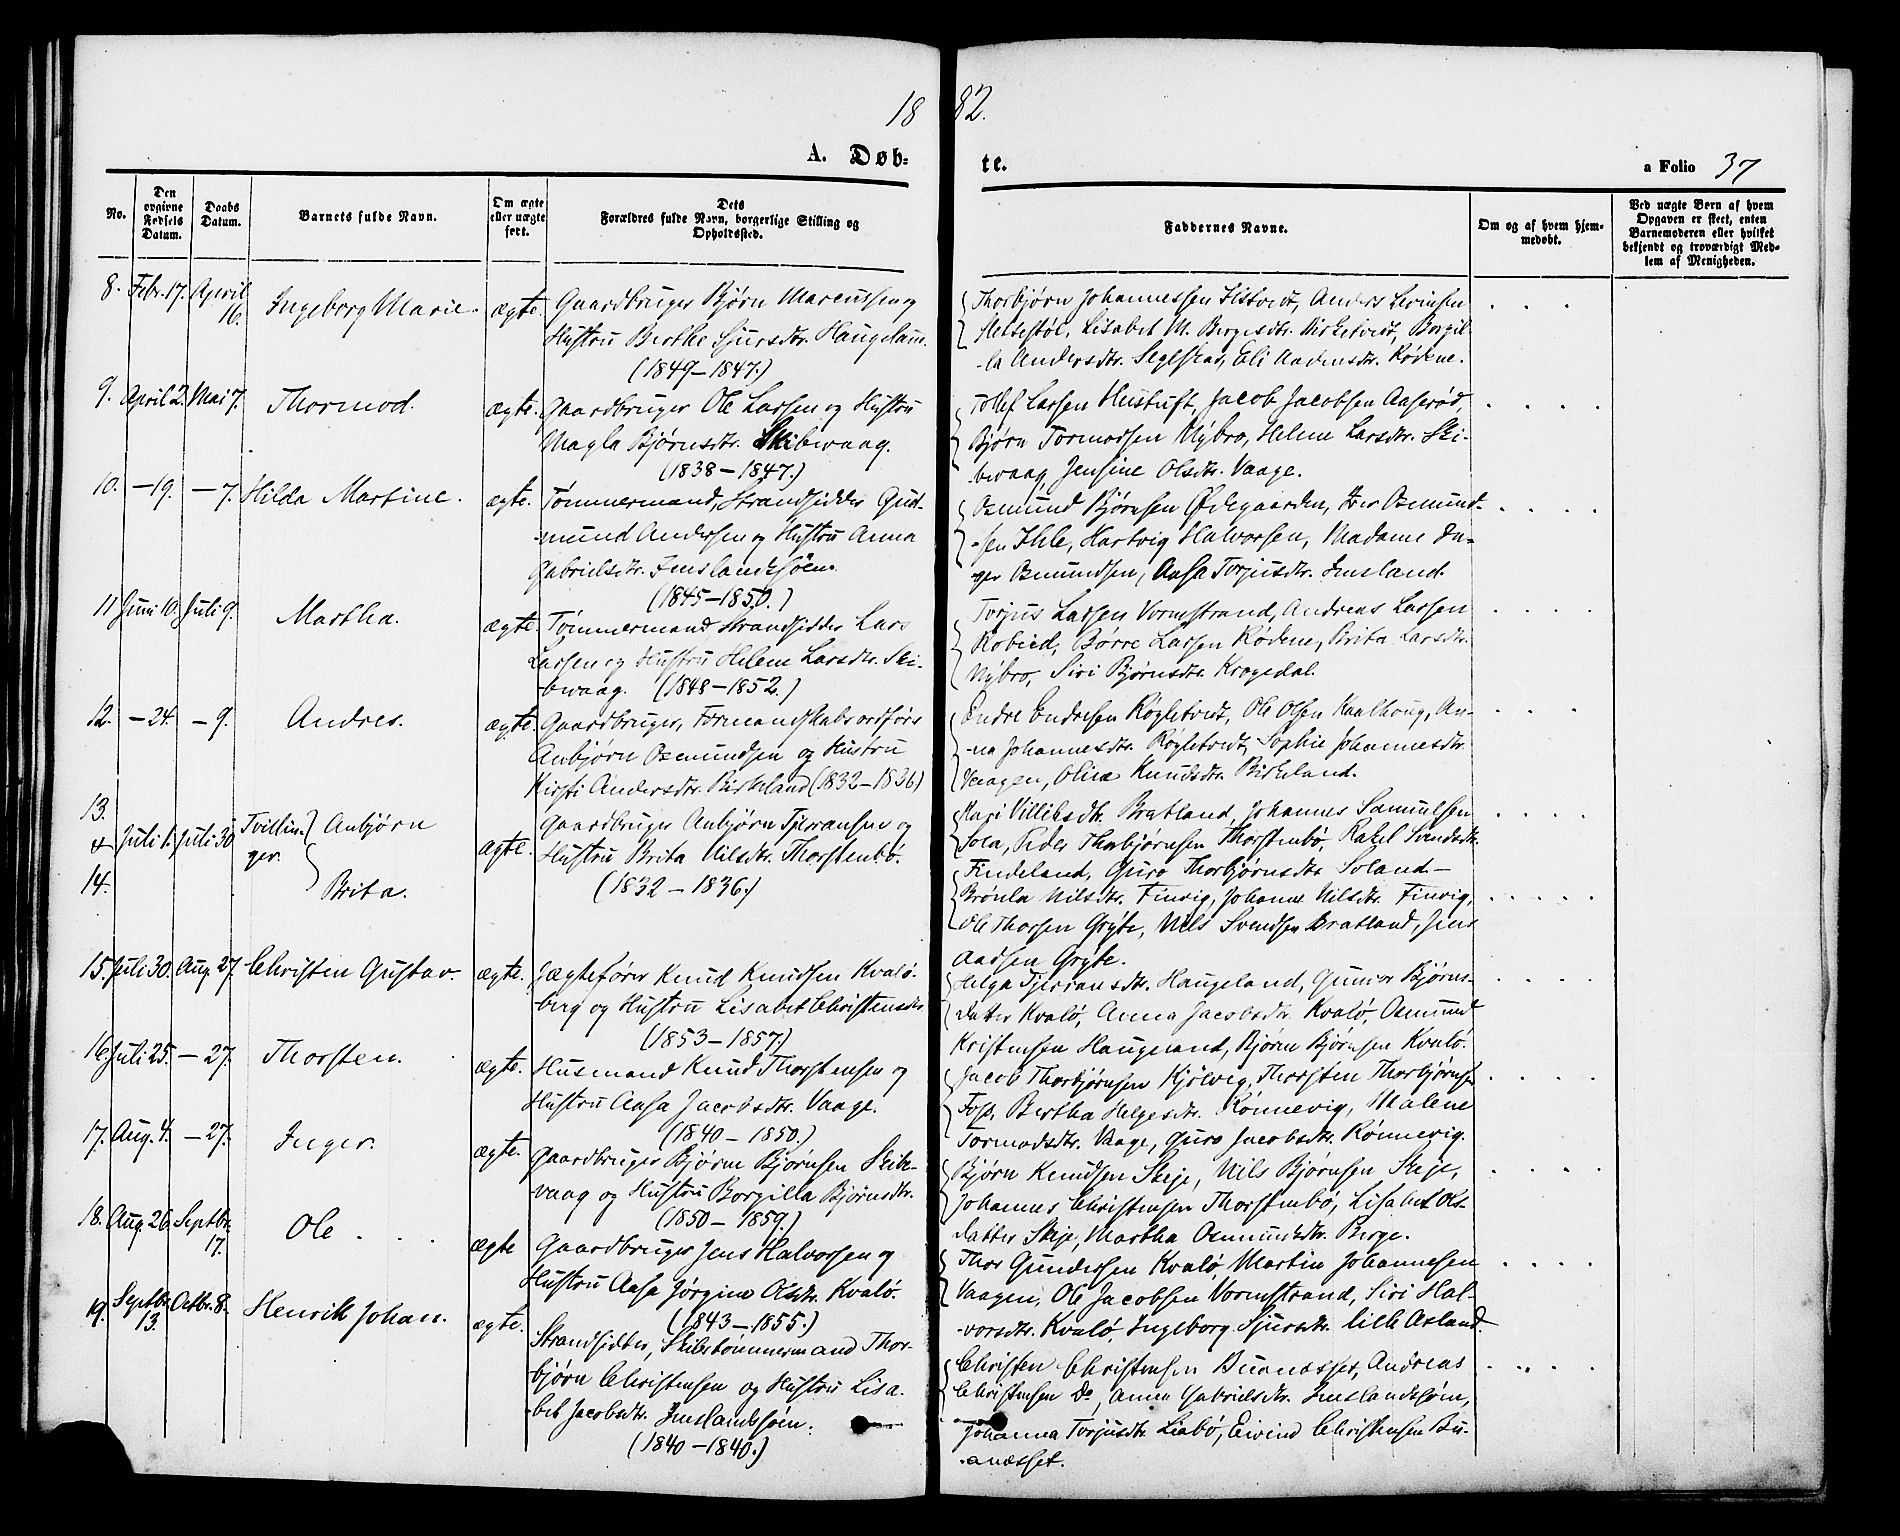 18 82.
A. Døb- te.
a Folio 37
No.
Den opgivne Fødsels Datum.
Daabs Datum.
Barnets fulde Navn.
Om ægte eller uægte født.
Dets Forældres fulde Navn, borgerlige Stilling og Opholdssted.
Faddernes Navne.
Om og af hvem hjemmedøbt.
Ved uægte Børn af hvem Opgaven er skeet, enten Barnemoderen eller hvilket bekjendt og troværdigt Medlem af Menigheden.
8. Febr. 17. April 16. Ingeborg Marie. ægte. Gaardbruger Bjørn Marcussen og
Hustru Berthe Sjursdtr. Haugeland.
(1849-1847.)
Thorbjørn Johannessen Listvedt, Anders
Lisabet M. Bergesdtr. Birketvedt, Borgil-
-la Andersdtr. Segelstad, Eli Andersdtr. Rødne.
9. April 2. Mai 7. Thormod. ægte. Gaardbruger Ole Larsen og Hustru
Magla Bjørnsdtr. Skibevaag.
(1838-1847.)
Tollef Larsen Hustuft, Jacob Jacobsen Aaserød,
Bjørn Tormodsen Nýbro, Helene Larsdtr. Ski-
bevaag, Jensine Olsdtr. Vaage.
10. -19. -7. Hilda Martine. ægte. Tømmermand, Strandsidder Gud-
-mund Andersen og Hustru Anna
Gabrielsdtr. Imslandsjøen.
(1845-1850.)
Osmund Bjørnsen Ødegaarden, Iver Osmund-
-sen Ihle, Hartvig Halvorsen, Madame In-
-ger Osmundsen, Aasa Torjusdtr. Imsland.
11 Juni 10. Juli 9. Martha. ægte. Tømmermand Strandsidder Lars
Larsen og Hustru Helene Larsdtr. Ski-
-bevaag. (1848-1852.)
Torjus Larsen Vormstrand, Andreas Larsen
Børre Larsen Rødne, Brita Larsdtr.
Nýbro, Siri Bjørnsdtr. Krogedal.
12. -24. -9. Andres. ægte Gaardbruger, Formandskabsordfører
Anbjørn Osmundsen og Hustru
Kirsti Andersdtr. Birkeland (1832-1836)
Endre Endresen Røgletvedt, Ole Olsen Kaalhoug, An-
-na Johannesdtr. Røgletvedt, Sophie Johannesdtr.
Vaagen, Olina Knudsdtr. Birkeland.
13.
& Juli 1. Juli 30 Tvillin- Anbjørn
ger.
14. Brita.
ægte. Gaardbruger Anbjørn Tjeransen og
Hustru Brita Nilsdtr. Thorstenbø.
(1832-1836.)
Kari Villiksdtr. Bratland, Johannes Samuelsen
Peder Thorbjørnsen Thorstenbø, Rakel Svendsdtr.
Findeland, Guro Thorbjørnsdtr. Soland-
Brønla Nilsdtr. Finvig, Johanne Nilsdtr. Finvig,
Ole Thorsen Grýte, Nils Svendsen Bratland, Jens
Aadsen Grýte.
15. Juli 30. Aug. 27. Christen Gustav. ægte. Jægtefører Knud Knudsen Kvalø-
berg og Hustru Lisabet Christensdtr.
(1853-1857.)
Helga Tjeransdtr. Haugeland, Gunvor Bjørns-
datter Kvalø, Anna Jacobsdtr. Kvalø, Osmund
Kristensen Haugeland, Bjørn Bjørnsen Kvalø.
16. Juli 25. -27. Thorsten. ægte. Husmand Knud Thorstensen og
Hustru Aasa Jacobsdtr. Vaage.
(1840-1850.)
Jacob Thorbjørnsen Kjølvig, Thorsten Thorbjørnsen
Foss, Bertha Helgesdtr. Rønnevig, Malene
Tormodsdtr. Vaage, Guro Jacobsdtr. Rønnevig.
17. Aug. 4. -27. Inger. ægte. Gaardbruger Bjørn Bjørnsen Skibe-
vaag og Hustru Borgilla Bjørnsdtr.
(1850-1859.)
Bjørn Knudsen Skeje, Nils Bjørnsen Skeje,
Johannes Christensen Thorstenbø, Lisabet Ols-
datter Skeje, Martha Osmundsdtr. Berge.
18. Aug. 26. Septbr. 17. Ole . . . ægte Gaardbruger Jens Halvorsen og
Hustru Aasa Jørgine Olsdtr. Kvalø.
(1843-1855.)
Thor Gundersen Kvalø, Martin Johannesen
Vaagen, Ole Jacobsen Vormstrand, Siri Hal-
-vorsdtr. Kvalø, Ingeborg Sjursdtr. lille Asland.
19. Septbr. 13. Octbr. 8. Henrik Johan. ægte. Strandsidder, Skibstømmermand Thor-
bjørn Christensen og Hustru Lisa-
-bet Jacobsdtr. Imslandsjøen.
(1840-1840.)
Christen Christensen Buanæsset, Andreas
Christensen Do, Anna Gabrielsdtr. Imslandsjøen,
Johanna Torjusdtr. Liabø, Eivind Christensen Bu-
-anæsset.